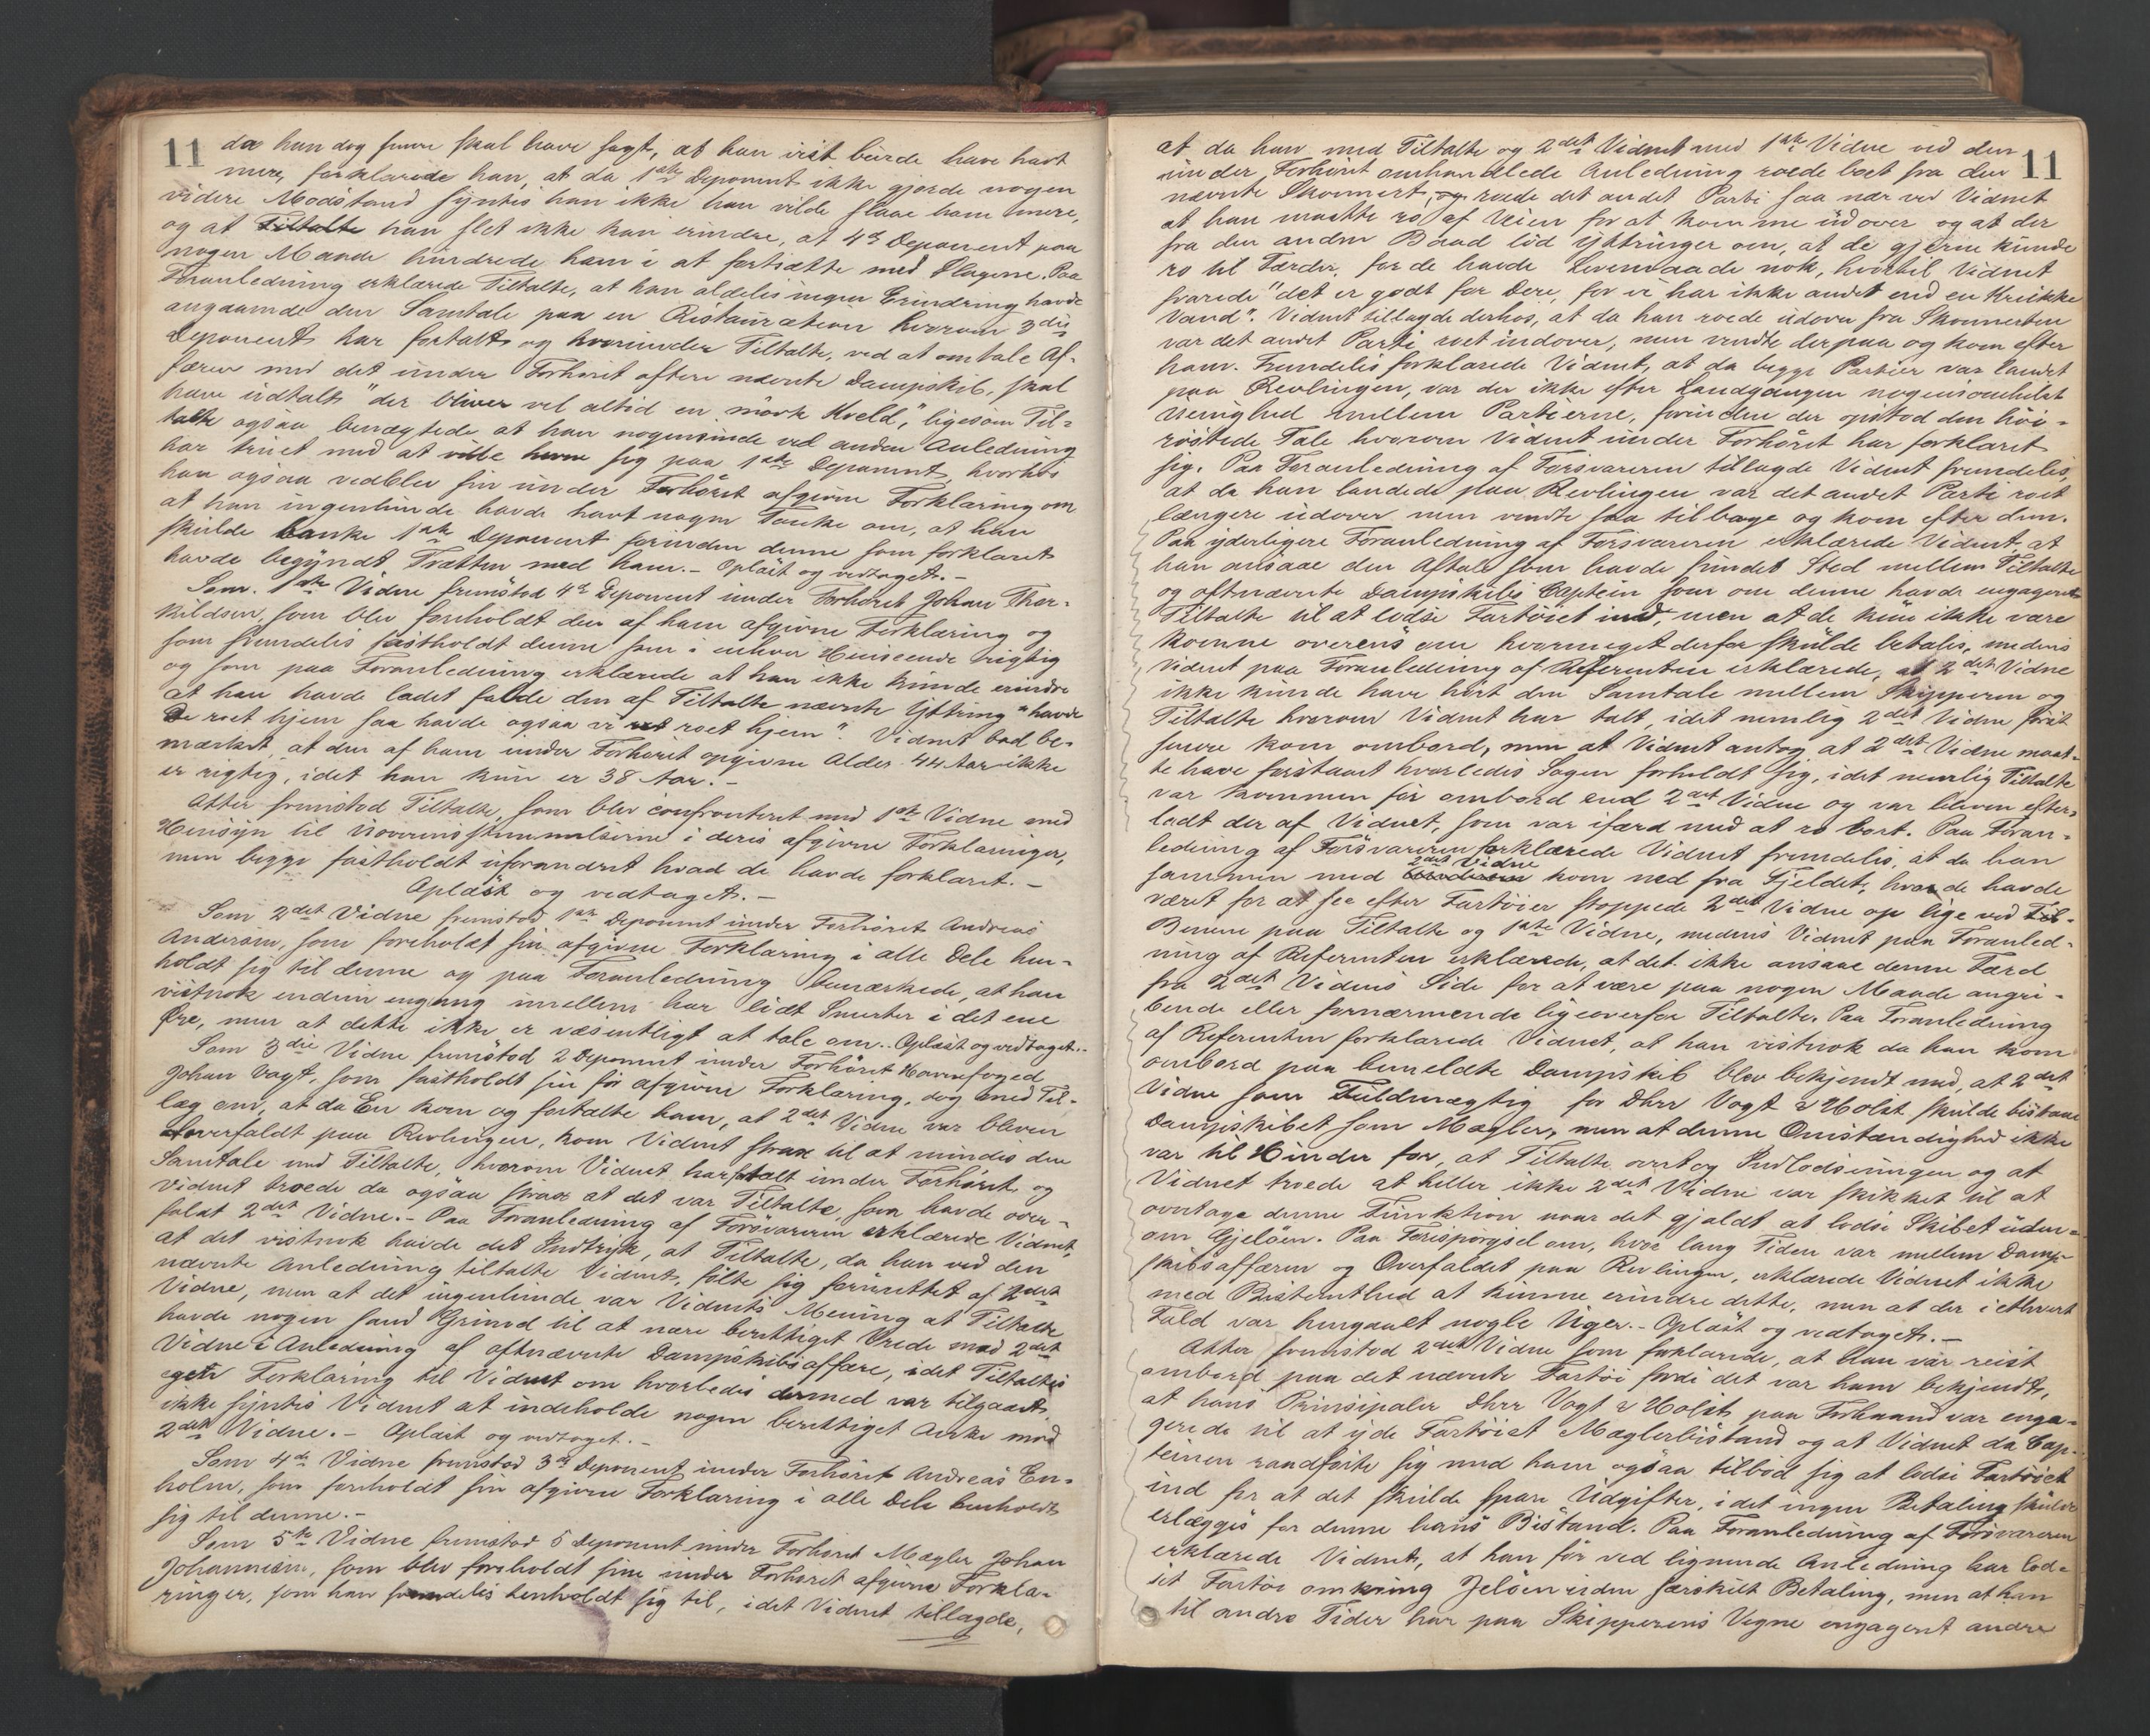 11
da han dog senere skal have sagt, at han vist burde have havt
mere, forklarede han, at da 1ste Deponent ikke gjorde nogen
videre Modstand syntes han ikke han vilde slaae ham mere,
og at Tiltalte han slet ikke kan erindre, at 4de Deponent paa
nogen Maade hindrede ham i at fortsætte med Slagene. Paa
Foranledning erklærede Tiltalte, at han aldeles ingen Erindring havde
angaaende den Samtale paa en Restauration hvorom 3die
Deponent har fortalt og hvorunder Tiltalte, ved at omtale Af-
færen med det under Forhøret oftere nævnte Dampskib, skal
have udtalt "der bliver vel altid en mørk Kveld", ligesom Til-
talte ogsaa benægtede at han nogensinde ved anden Anledning
har truet med at ville hevne sig paa 1ste Deponent, hvorhos
han ogsaa vedblev sin under Forhøret afgivne Forklaring om
at han ingenlunde havde havt nogen Tanke om, at han
skulde banke 1ste Deponent forinden denne som forklaret
havde begyndt Trætten med ham. - Oplæst og vedtaget. -
Som 1ste Vidne fremstod 4de Deponent under Forhøret Johan Thor-
kildsen, som blev foreholdt den af ham afgivne Forklaring og
som fremdeles fastholdt denne som i enhver Henseende rigtig
og som paa Foranledning erklærede at han ikke kunde erindre
at han havde ladet falde den af Tiltalte nævnte Yttring "havde
De roet hjem saa havde ogsaa vi roet hjem". Vidnet bad be-
mærket, at den af ham under Forhøret opgivne Alder 44 Aar ikke
er rigtig, idet han kun er 38 Aar. -
Atter fremstod Tiltalte, som blev confronteret med 1ste Vidne med
Hensyn til Uoverensstemmelserne i deres afgivne Forklaringer,
men begge fastholdt uforandret hvad de havde forklaret. -
Oplæst og vedtaget. -
Som 2det Vidne fremstod 1ste Deponent under Forhøret Andreas
Andersen, som foreholdt sin afgivne Forklaring i alle Dele hen-
holdt sig til denne og paa Foranledning bemærkede, at han
vistnok endnu engang imellem har lidt Smerter i det ene
Øre, men at dette ikke er væsentligt at tale om. - Oplæst og vedtaget. -
Som 3die Vidne fremstod 2 Deponent under Forhøret Havnefoged
Johan Vogt, som fastholdt sin før afgivne Forklaring, dog med Til-
læg om, at da En kom og fortalte ham, at 2det Vidne var bleven
overfaldt paa Revlingen, kom Vidnet strax til at mindes den
Samtale med Tiltalte, hvorom Vidnet har talt under Forhøret, og
Vidnet troede da ogsaa strax at det var Tiltalte, som havde over-
faldt 2det Vidne. - Paa Foranledning af Forsvareren erklærede Vidnet,
at det vistnok havde det Indtryk, at Tiltalte, da han ved den
nævnte Anledning tiltalte Vidnet, følte sig forurettet af 2det
Vidne, men at det ingenlunde var Vidnets Mening at Tiltalte
havde nogen sand Grund til at nære berettiget Vrede mod 2det
Vidne i Anledning af oftnævnte Dampskibsaffære, idet Tiltaltes
egen Forklaring til Vidnet om hvorledes dermed var tilgaaet,
ikke syntes Vidnet at indeholde nogen berettiget Anke mod
2det Vidne. - Oplæst og vedtaget. -
Som 4de Vidne fremstod 3die Deponent under Forhøret Andreas En-
holm, som foreholdt sin afgivne Forklaring i alle Dele henholdt
sig til denne. -
Som 5te Vidne fremstod 5 Deponent under Forhøret Mægler Johan
Johannesen, som blev foreholdt sine under Forhøret afgivne Forkla-
ringer, som han fremdeles henholdt sig til, idet Vidnet tillagde,
11
at da han med Tiltalte og 2det Vidnet med 1ste Vidne ved den
under Forhøret omhandlede Anledning roede bort fra den
nævnte Skonnert, og roede det andet Parti saa nær ved Vidnet
at han maatte ro af Veien for at komme udover og at der
fra den anden Baad lød Yttringer om, at de gjerne kunde
ro til Færder, for de havde Levemaade nok, hvortil Vidnet
svarede "det er godt for Dere, for vi har ikke andet end en Krukke
Vand". Vidnet tillagde derhos, at da han roede udover fra Skonnerten
var det andet Parti roet indover, men vendte derpaa og kom efter
ham. Fremdeles forklarede Vidnet, at da begge Partier var landet
paa Revlingen, var der ikke efter Landgangen nogensomhelst
Uenighed mellem Partierne, forinden der opstod den høi-
røstede Tale hvorom Vidnet under Forhøret har forklaret
sig. Paa Foranledning af Forsvareren tillagde Vidnet fremdeles,
at da han landede paa Revlingen var det andet Parti roet
længere udover men vendte saa tilbage og kom efter dem.
Paa yderligere Foranledning af Forsvareren erklærede Vidnet, at
han ansaae den Aftale som havde fundet Sted mellem Tiltalte
og oftnævnte Dampskibs Captein som om denne havde engageret
Tiltalte til at lodse Fartøiet ind, men at de kun ikke vare
komne overens om hvormeget derfor skulde betales, medens
Vidnet paa Foranledning af Referenten erklærede, at 2det Vidne
ikke kunde have hørt den Samtale mellem Skipperen og
Tiltalte hvorom Vidnet har talt, idet nemlig 2det Vidne først
senere kom ombord, men at Vidnet antog at 2det Vidne maat-
te have forstaaet hvorledes Sagen forholdt sig, idet nemlig Tiltalte
var kommen før ombord end 2det Vidne og var bleven efter-
ladt der af Vidnet, som var ifærd med at ro bort. Paa Foran-
ledning af Forsvareren forklarede Vidnet fremdeles, at da han
2det Vidne
sammen med kom ned fra Fjeldet, hvor de havde
været for at see efter Fartøier stoppede 2det Vidne op lige ved
Benene paa Tiltalte og 1ste Vidne, medens Vidnet paa Foranled-
ning af Referenten erklærede, at det ikke ansaae denne Færd
fra 2det Vidnes Side for at være paa nogen Maade angri-
bende eller fornærmende ligeoverfor Tiltalte. Paa Foranledning
af Referenten forklarede Vidnet, at han vistnok da han kom
ombord paa bemeldte Dampskib blev bekjendt med, at 2det
Vidne som Fuldmægtig for Dhrr Vogt & Holst skulde bistaae
Dampskibet som Mægler, men at denne Omstændighed ikke
var til Hinder for, at Tiltalte overtog Indlodsningen og at
Vidnet troede at heller ikke 2det Vidne var skikket til at
overtage denne Funktion naar det gjaldt at lodse Skibet uden-
om Gjeløen. Paa Forespørgsel om, hvor lang Tiden var mellem Damp-
skibsaffæren og Overfaldet paa Revlingen, erklærede Vidnet ikke
med Bestemthed at kunne erindre dette, men at der i ethvert
Fald var hengaaet nogle Uger. - Oplæst og vedtaget. -
Atter fremstod 2det Vidne som forklarede, at han var reist
ombord paa det nævnte Fartøi fordi det var ham bekjendt,
at hans Prinsipaler Dhrr Vogt & Holst paa Forhaand var enga-
gerede til at yde Fartøiet Mæglerbistand og at Vidnet da Cap-
teinen raadførte sig med ham ogsaa tilbød sig at lodse Fartøiet
ind for at det skulde spare Udgifter, idet ingen Betaling skulde
erlægges for denne hans Bistand. Paa Foranledning af Forsvareren
erklærede Vidnet, at han før ved lignende Anledning har lod-
set Fartøi omkring Jeløen uden særskilt Betaling, men at han
til andre Tider har paa Skipperens Vegne engageret andre